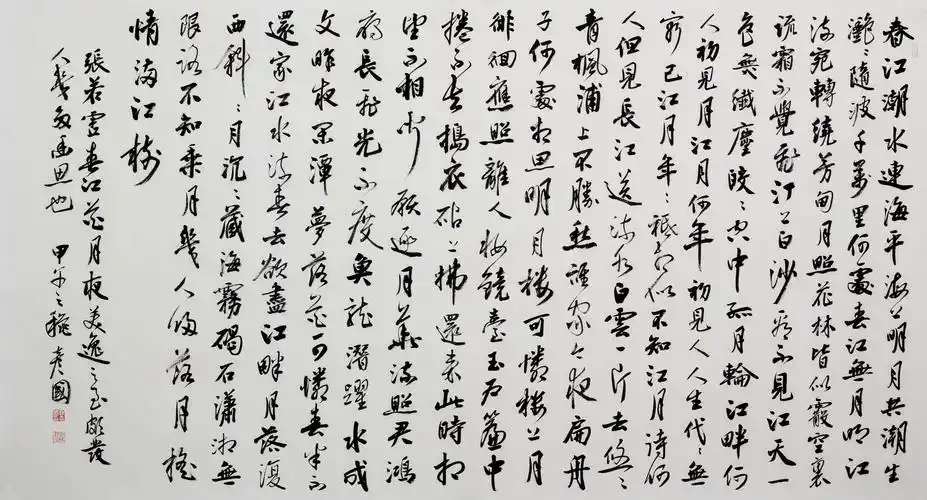 春江潮水連海平海上明月共潮生
灩〻隨波千萬里何處春江無月明江
流宛轉繞芳甸月照花林皆似霰空裏
流霜不覺飛汀上白沙看不見江天一
色無纖塵皎〻空中孤月輪江畔何
人初見月江月何年初見人人生代〻無
窮已江月年〻祗相似不知江月待何
人但見長江送流水白雲一片去悠〻
青楓浦上不勝愁誰家今夜扁舟
子何處相思明月樓可憐樓上月
徘徊應照離人妝鏡臺玉戶簾中
捲不去搗衣砧上拂還來此時相
望不相聞願逐月華流照君鴻
雁長飛光不度魚龍潛躍水成
文昨夜閑潭夢落花可憐春半不
還家江水流春去欲盡江畔月落復
西斜〻月沉〻藏海霧碣石瀟湘無
限路不知乘月幾人歸落月搖
情滿江樹
張若虛春江花月夜美逸之至頗發
人幾多幽思也 甲午之秋 彥國